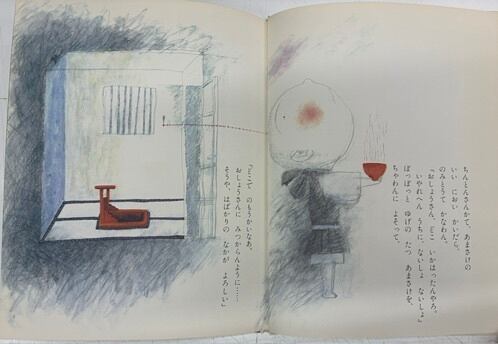 ちんとんさんかて、あまさけの
いい におい かいだら、
のみとうて かなわん。
「おしょうさん、どこ いかはったんやろ。
いやれへん うちに、ないしょ ないしょ」
ぽっぽっと ゆげの たつ あまさけを、
ちゃわんに よそって、
「どこで のもうかいなあ。
おしょうさんに みつからんように……
そうや、はばかりの なかが よろしい」